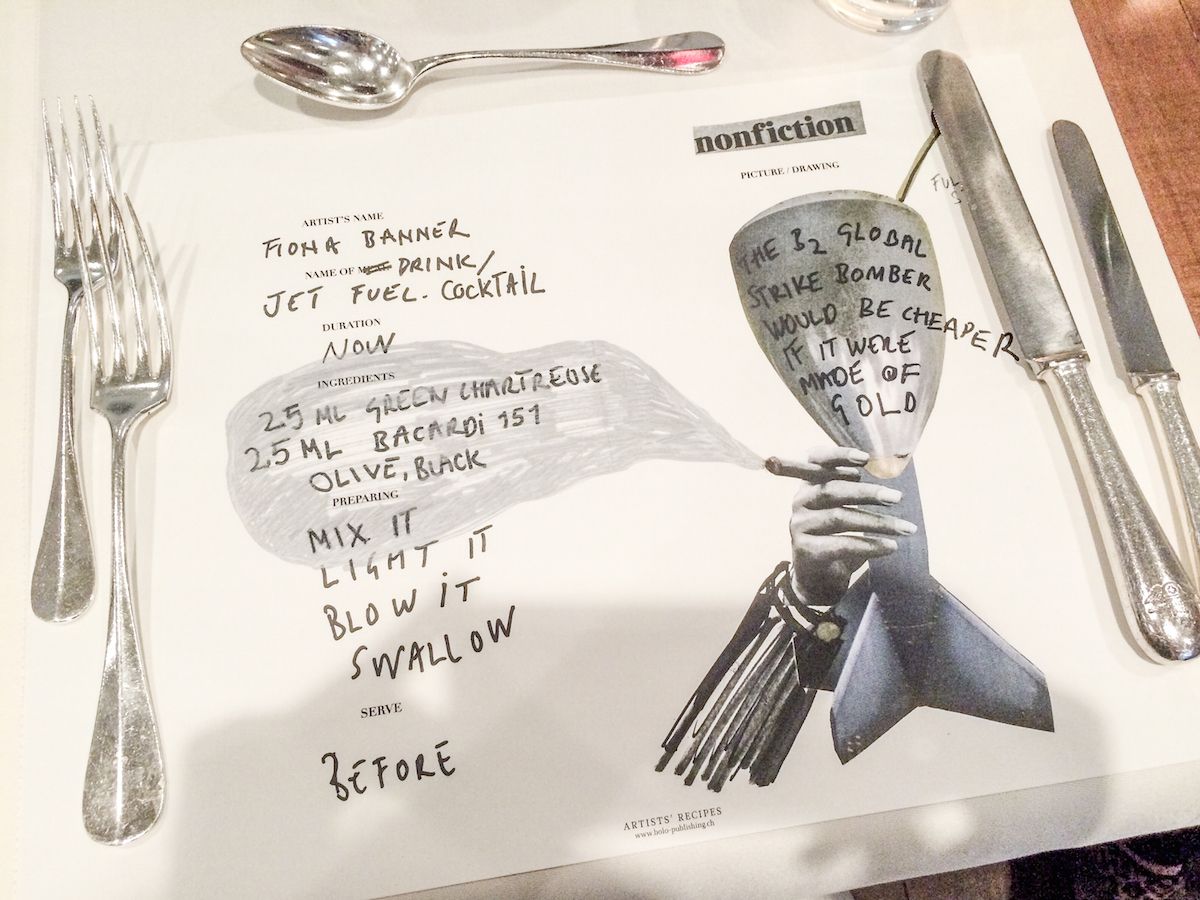 nonfiction
PICTURE / DRAWING
ARTIST'S NAME
FIONA BANNER
NAME OF DRINK/
JET FUEL. COCKTAIL
DURATION
NOW
INGREDIENTS
25 ML GREEN CHARTREUSE
25 ML BACARDi 151
OLIVE, BLACK
PREPARING
MIX IT
LIGHT IT
BLOW iT
SWALLOW
SERVE
BEFORE
THE B2 GLOBAL
STRIKE BOMBER
WOULD BE CHEAPER
IF IT WERE
MADE OF
GOLD
ARTISTS' RECIPES
www.bolo-publishing.ch